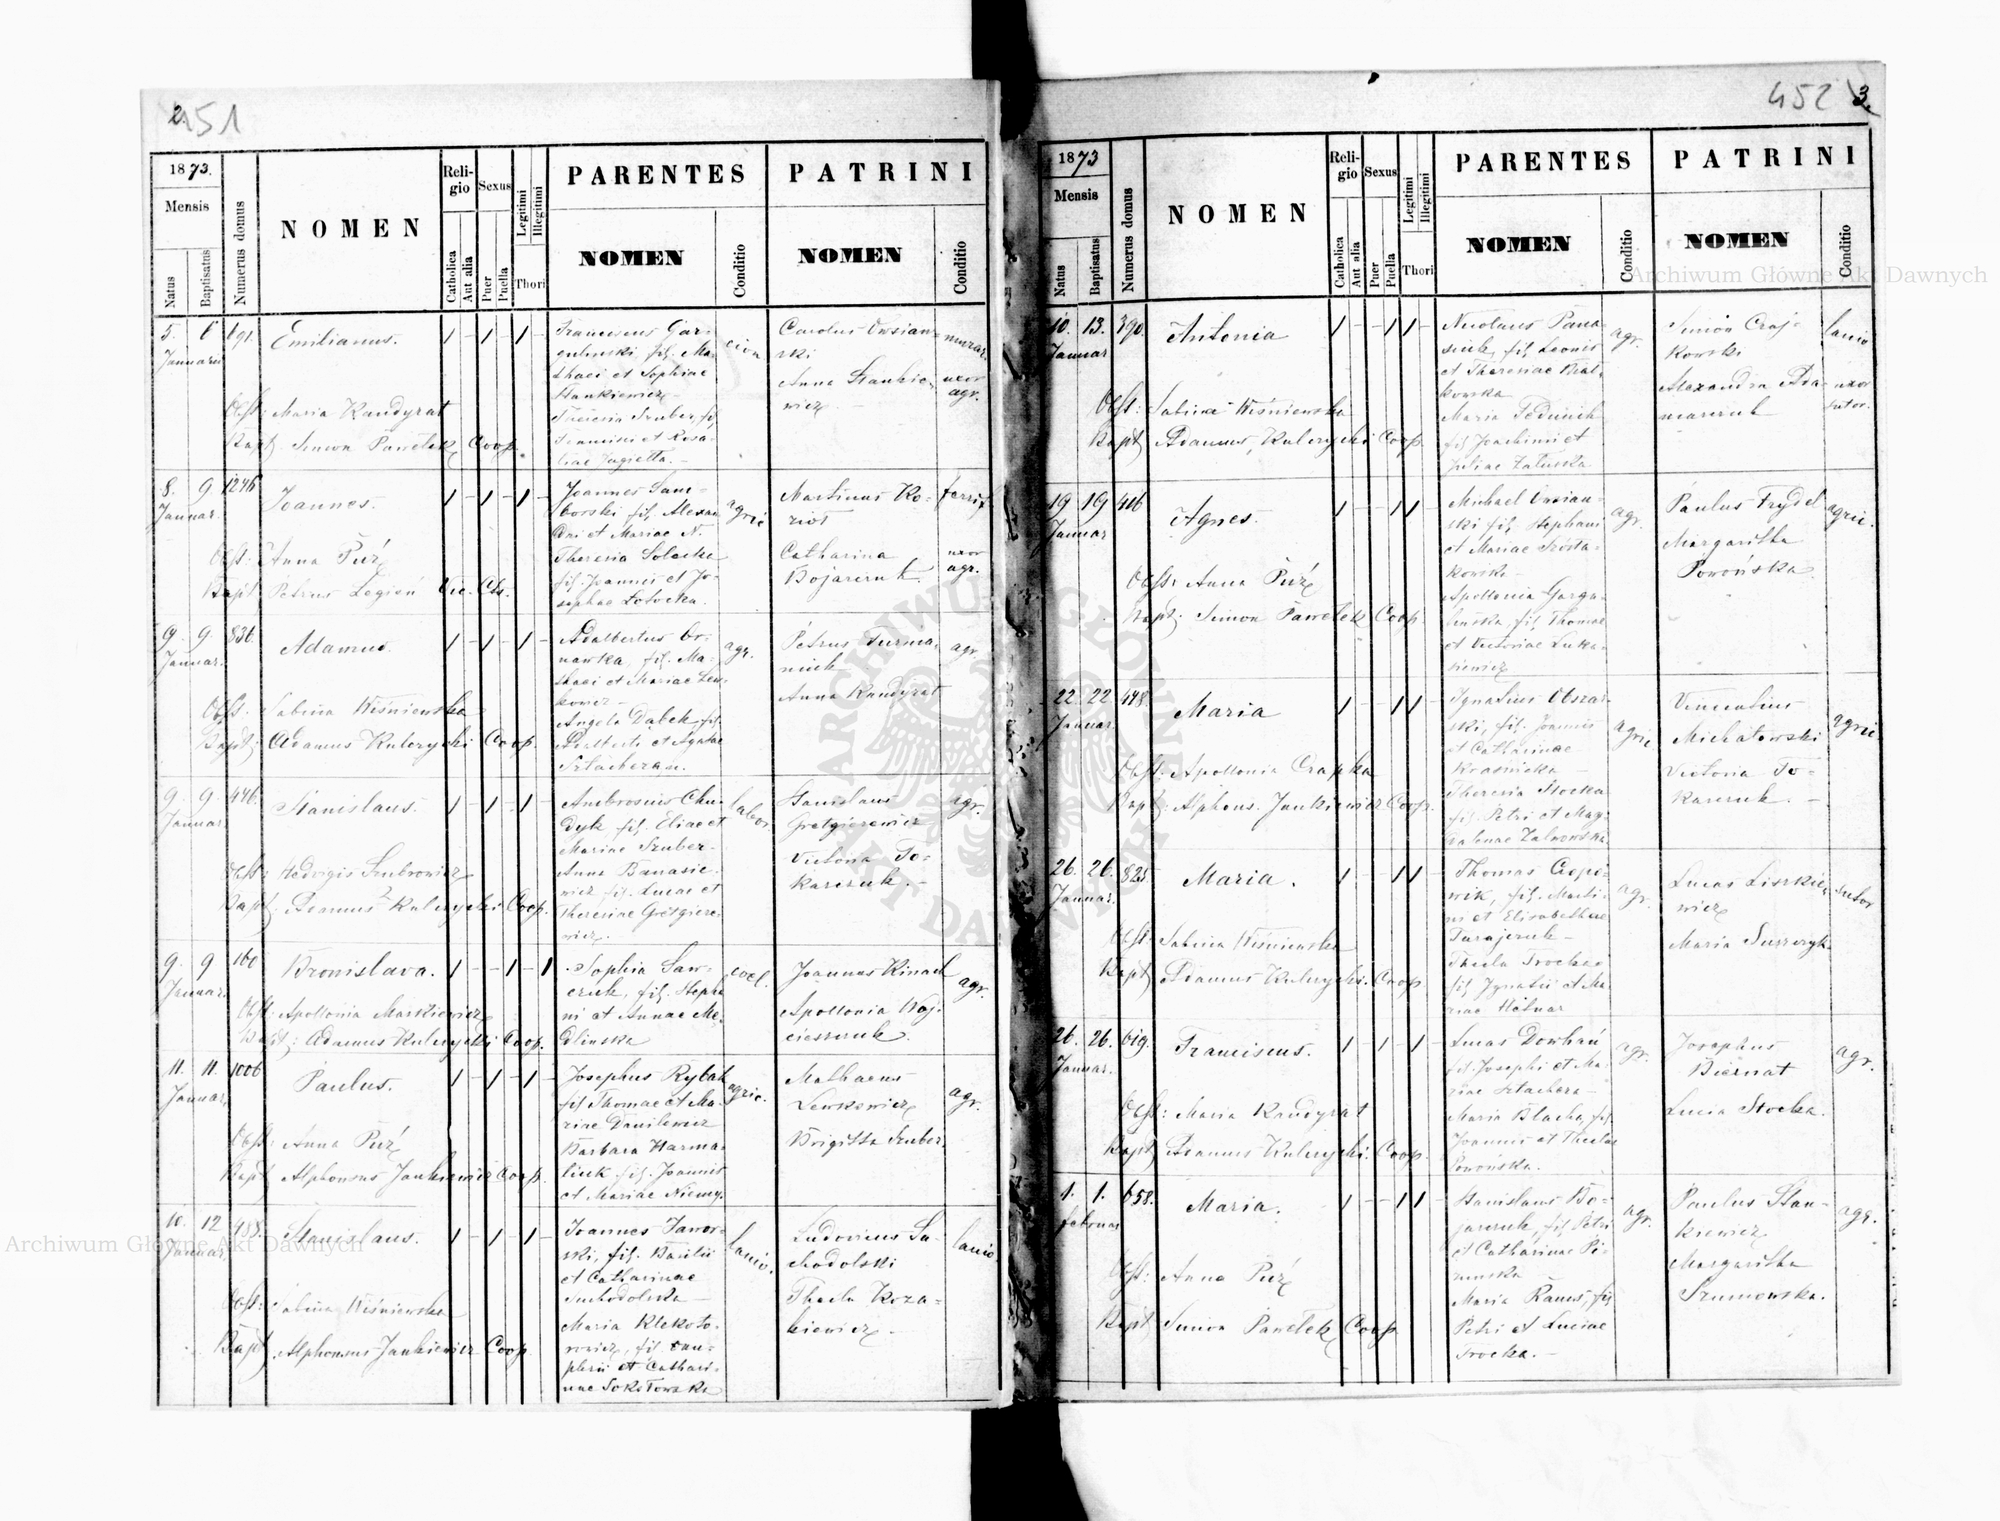 2. 451
1873.
Mensis
Natus
Baptisatus
Numerus domus
NOMEN
Religio
Catholica
Aut alia
Sexus
Puer
Puella
Legitimi
Illegitimi
Thori
PARENTES
NOMEN
Conditio
PATRINI
NOMEN
Conditio
5. 6 691. Emilianus.
Januarii
Obst: Maria Kandyrat
Bapt. Simon Pawełek Coop.
Franciscus Gar-
guliński, fil. Ma-
thaei et Sophiae
Stankiewicz
Theresia Szuber, fil.
Francisci et Rosa-
liae Jagiełła. -
Carolus Owsian-
ski
murar.
Anna Stankie-
wicz -
uxor
agr.
8. 9 1246 Joannes.
Januar.
Obst: Anna Puż
Bapt Petrus Legień Vic. Cts.
Joannes Sam-
borski fil. Alexan
dri et Mariae N.
Theresia Solecka
fil. Joannis et Jo-
sephae Łotocka.
agric
Martinus Ko-
zioł
Catharina
Bojarczuk.
uxor
agr.
9. 9. 836. Adamus.
Januar.
Obst. Sabina Wiśniewska
Bapt: Adamus Kulczycki Coop.
Adalbertus Or-
nawka, fil. Ma-
thaei et Mariae Lew-
kowicz -
Angela Dąbek fil.
Adalberti et Agatae
Szlachcian.
agr.
Petrus Furma-
niuk
Anna Kandyrat
agr.
9. 9. 446. Stanislaus.
Januar
Obst: Hedvigis Szubrowicz
Bapt. Adamus Kulczycki Coop.
Ambrosius Chu-
dyk, fil. Eliae et
Mariae Szuber-
Anna Banasie-
wicz fil. Lucae et
Theresiae Gretgiere-
wicz.
labor.
Stanislaus
Gretgierewicz
Victoria To-
karczuk. -
agr.
9. 9 160 Bronislava.
Januar.
Obst: Apollonia Markiewicz
Bapt: Adamus Kulczycki Coop.
Sophia Saw-
czuk, fil. Stepha
ni et Annae Me-
dlińska
coel.
Joannes Kinach
Apollonia Woj-
cieszczuk.
agr.
11. 11. 1006 Paulus.
Januar.
Obst: Anna Puż
Bapt Alphonsus Jankiewicz Coop.
Josephus Rybak
fil. Thomae et Ma-
riae Danilewicz
Barbara Harma-
tiuk, fil. Joannis
et Mariae Niemy.
agric.
Mathaeus
Lewkowicz
Brigitta Szuber.
agr.
10. 12 988. Stanislaus.
Januar.
Obst: Sabina Wiśniewska
Bapt. Alphonsus Jankiewicz Coop
Joannes Jawor-
ski, fil. Basilii
et Catharinae
Suchodolska -
Maria Klekoto-
wicz, fil. Onu-
phrii et Cathari-
nae Sokołowska
lanio.
Ludovicus Su-
chodolski
Thecla Koza-
kiewicz -
lanio.
452 3.
1873
Mensis
Natus
Baptisatus
Numerus domus
NOMEN
Religio
Catholica
Aut alia
Sexus
Puer
Puella
Legitimi
Illegitimi
Thori
PARENTES
NOMEN
Conditio
PATRINI
NOMEN
Conditio
10. 13. 390. Antonia
Januar
Obst: Sabina Wiśniewska
Bapt Adamus Kulczycki Coop.
Nicolaus Pana-
siuk, fil. Leonis
et Theresiae Wal-
kowska
Maria Feduniek
fil. Joachimi et
Juliae Załuska
agr.
Simon Czaj-
kowski
lanio
Alexandra Ada-
marczuk
uxor
sutor.
19 19 416 Agnes.
Januar
Obst: Anna Puż
Bapt: Simon Pawełek Coop.
Michael Owsian-
ski, fil. Stephani
et Mariae Szósta-
kowska -
Apollonia Garga-
lińska, fil. Thomae
et Victoriae Łuka-
siewicz
agr.
Paulus Frydel
Margaritta
Powońska.
agric.
22. 22 448. Maria
Januar
Obst: Apollonia Czapka
Bapt: Alphons. Jankiewicz Coop.
Ignatius Obszar-
ski, fil. Joannis
et Catharinae
Kraśnicka -
Theresia Stocka
fil. Petri et Mag-
dalenae Zalwowska
agric.
Vincentius
Michałowski
Victoria To-
karczuk. -
agric.
26. 26. 825 Maria.
Januar.
Obst: Sabina Wiśniewska
Bapt Adamus Kulczycki. Coop
Thomas Czopi-
wik, fil. Marti-
ni et Elisabethae
Tarajczuk -
Thecla Srocka
fil. Ignatii et Ma-
riae Hetnar
agr.
Lucas Liszkie-
wicz
Maria Suszczyk
sutor
26. 26. 619. Franciscus.
Januar.
Obst: Maria Kandyrat
Bapt Adamus Kulczycki. Coop.
Lucas Dowhań
fil. Josephi et Ma-
riae Szlachcra -
Maria Blacha, fil.
Joannis et Theclae
Powońska.
agr.
Josephus
Biernat
Lucia Stocka.
agr.
1. 1. 658. Maria.
Februar
Obst: Anna Puż
Bapt Simon Pawełek Coop
Stanislaus Bo-
jarczuk, fil. Petri
et Catharinae Pi-
narska
Maria Ranus, fil.
Petri et Luciae
Srocka. -
agr.
Paulus Stan-
kiewicz
Margaritta
Szumowska.
agr.
Archiwum Główne Akt Dawnych
ARCHIWUM GŁÓWNE AKT DAWNYCH
Archiwum Główne Akt Dawnych